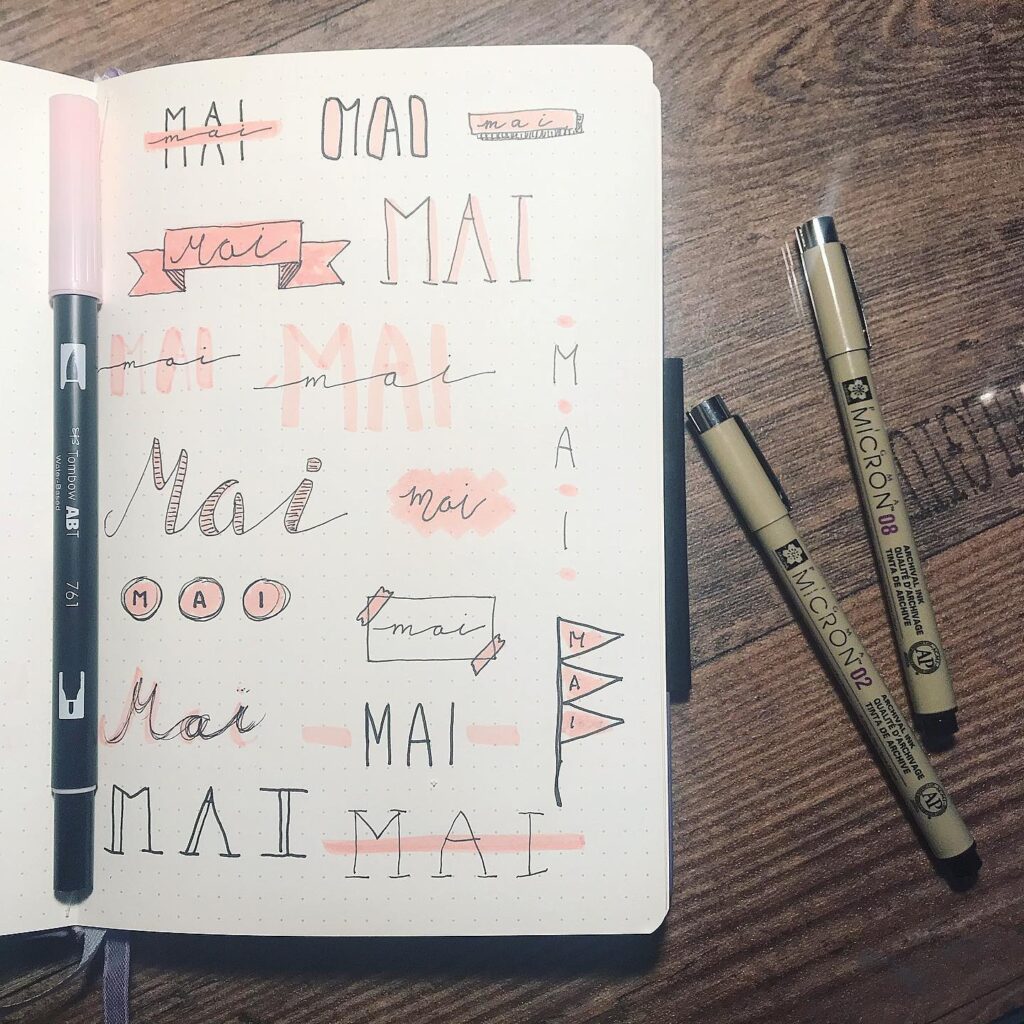 MAI
mai
MAI
mai
Mai
MAI
MAI
mai
MAI
mai
MAI
Mai
mai
MAI
mai
MAI
Mai
MAI
MAI
MAI
Tombow ABT
Water-Based
761
MICRON 08
ARCHIVAL INK
QUALITÉ D'ARCHIVAGE
TINTA DE ARCHIVE
AP
MICRON 02
ARCHIVAL INK
QUALITÉ D'ARCHIVAGE
TINTA DE ARCHIVE
AP